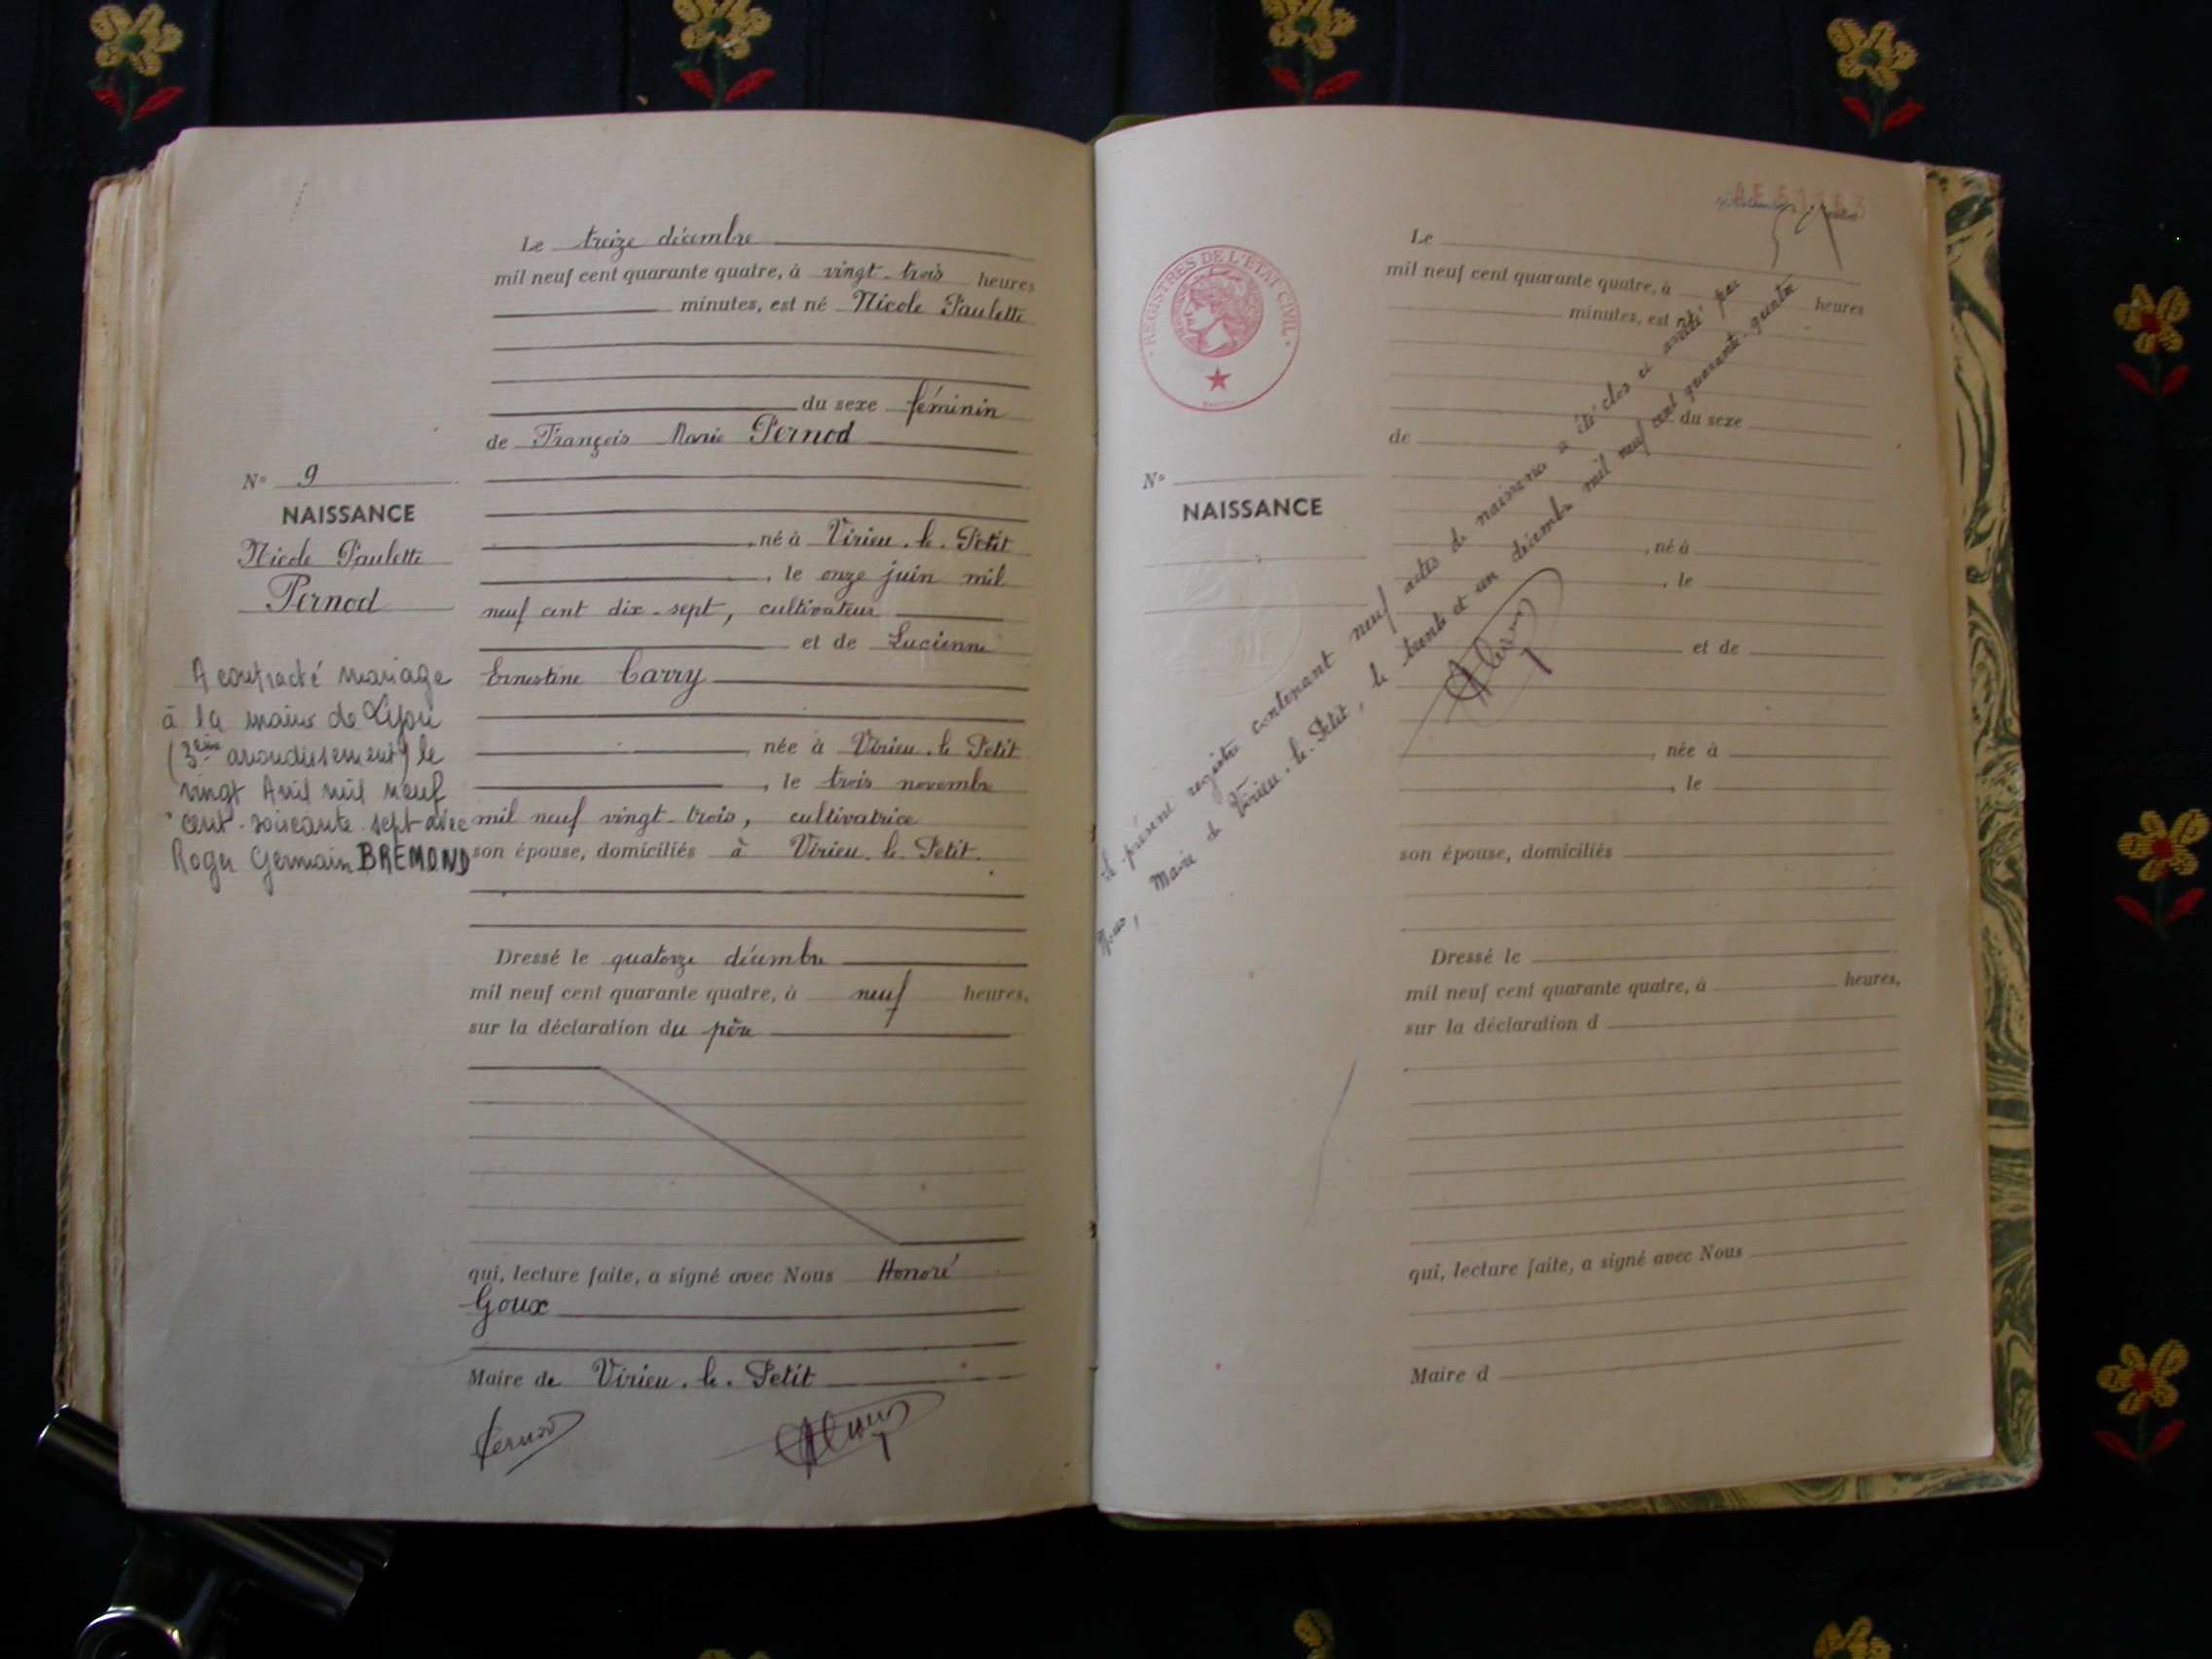 Le treize décembre
mil neuf cent quarante quatre, à vingt-trois heures
minutes, est né Nicole Paulette
du sexe féminin
de François Marie Pernod
N° 9
NAISSANCE
Nicole Paulette
Pernod
né à Virieu-le-Petit
, le onze juin mil
neuf cent dix-sept, cultivateur
et de Lucienne
Ernestine Carry
, née à Virieu-le-Petit
, le trois novembre
mil neuf vingt-trois, cultivatrice
son épouse, domiciliés à Virieu-le-Petit
A contracté mariage
à la mairie de Lyon
(3ème arrondissement) le
vingt Avril mil neuf
cent-soixante-sept avec
Roger Germain BREMOND
Dressé le quatorze décembre
mil neuf cent quarante quatre, à neuf heures,
sur la déclaration du père
qui, lecture faite, a signé avec Nous Honoré
Goux
Maire de Virieu-le-Petit
Pernod
REGISTRES DE L'ETAT CIVIL
Le
mil neuf cent quarante quatre, à heures
minutes, est né
du sexe
de
N°
NAISSANCE
, né à
, le
et de
, née à
, le
son épouse, domiciliés
Dressé le
mil neuf cent quarante quatre, à heures,
sur la déclaration d
qui, lecture faite, a signé avec Nous
Maire d
Le présent registre contenant neuf actes de naissance a été clos et arrêté par
Nous, Maire de Virieu-le-Petit, le trente et un décembre mil neuf cent quarante-quatre